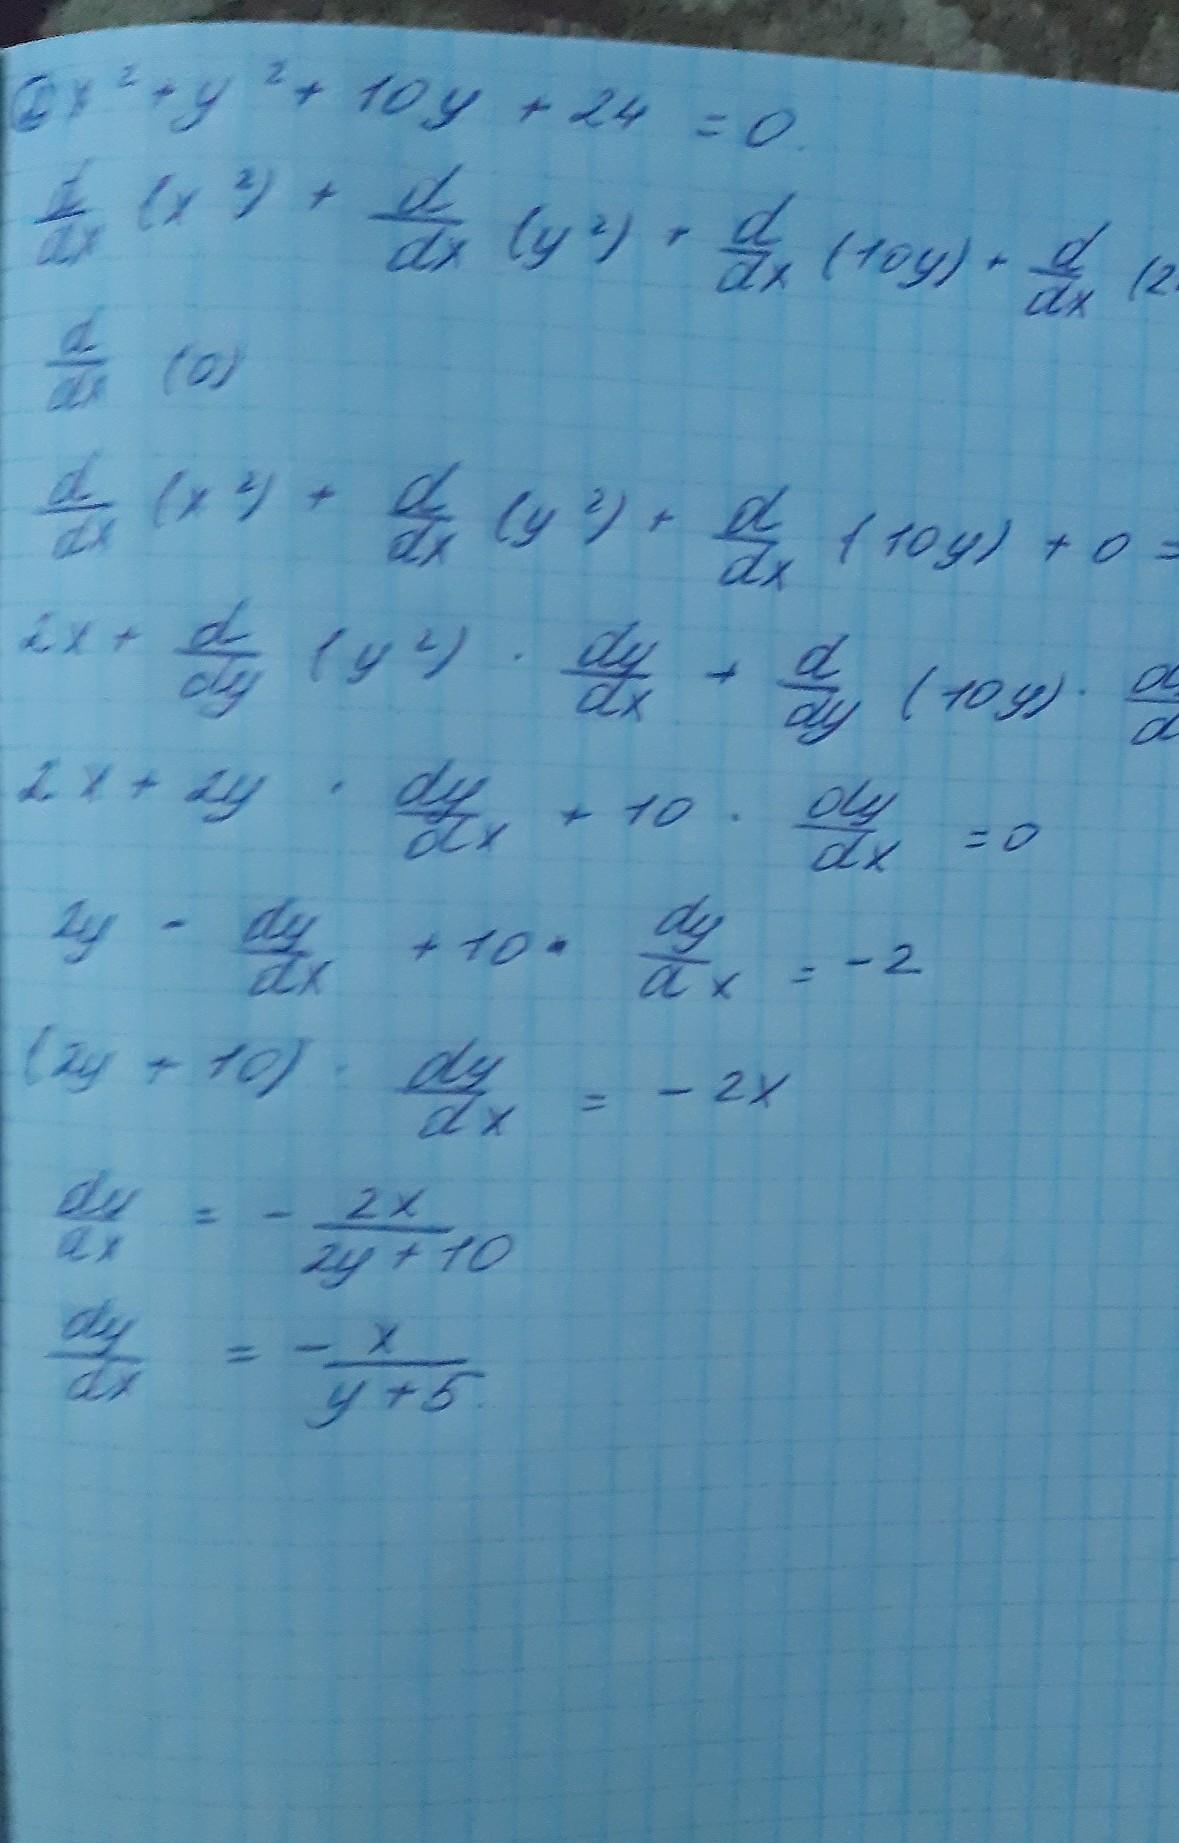 ② x² + y² + 10y + 24 = 0.
d/dx (x²) + d/dx (y²) + d/dx (10y) + d/dx (2
d/dx (0)
d/dx (x²) + d/dx (y²) + d/dx (10y) + 0 =
2x + d/dy (y²) · dy/dx + d/dy (10y) ·
2x + 2y · dy/dx + 10 · dy/dx = 0
2y - dy/dx + 10 · dy/dx = -2
(2y + 10) · dy/dx = - 2x
dy/dx = - 2x/2y + 10
dy/dx = - x/y + 5.